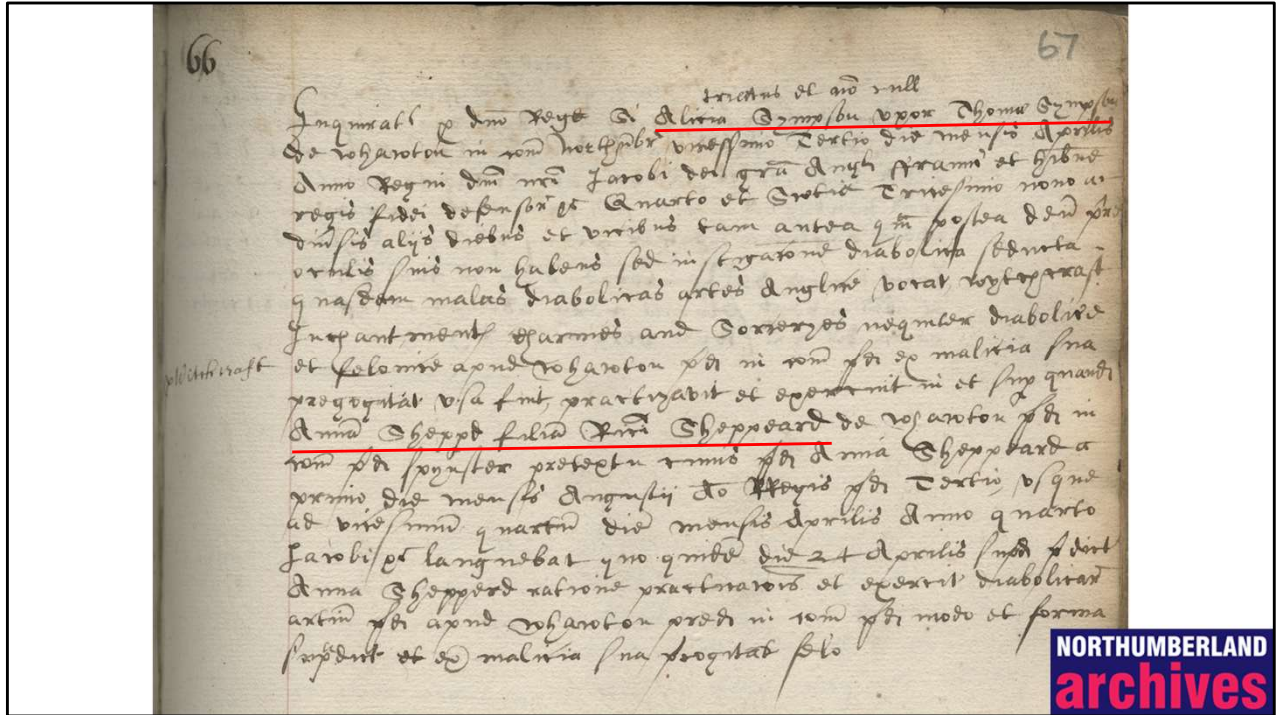 66
67
triatus et no null
Inquirat p dno Rege Si Alicia Sympson uxor Thome Sympson
de Wharoton in com Northubr vicessimo Tertio die mensis Aprilis
Anno Regni dni nri Jacobi dei gra Angli ffranc et hibne
regis fidei defensor &c Quarto et Scotie Tricesimo nono ac
divsis aliis diebus et vicibus tam antea qm postea deu pre
oculis suis non habens sed instigacone diabolica seducta
quasdam malas diabolicas artes Anglice vocat wytchcraft
Inchantment charmes and Sorceryes nequiter diabolice
witchcraft
et felonice apud Wharoton pd in com pd ex malicia sua
precogitat usa fuit, practizavit et exercuit in et sup quand
Annā Sheppd filiā Rici Sheppeard de Wharoton pd in
com pd spynster pretextu cuius pd Anna Sheppeard a
primo die mensis Augustii Ao Regis pd Tertio, usque
ad vicesimū quartū diē mensis Aprilis Anno quarto
Jacobi &c languebat quo quidē die 24 Aprilis supd pdict
Anna Shepperd ratione practicacois et exercit diabolicar
artiū pd apud Wharoton pred in com pd modo et forma
supdict et ex malicia sua precogitat felo
NORTHUMBERLAND
archives